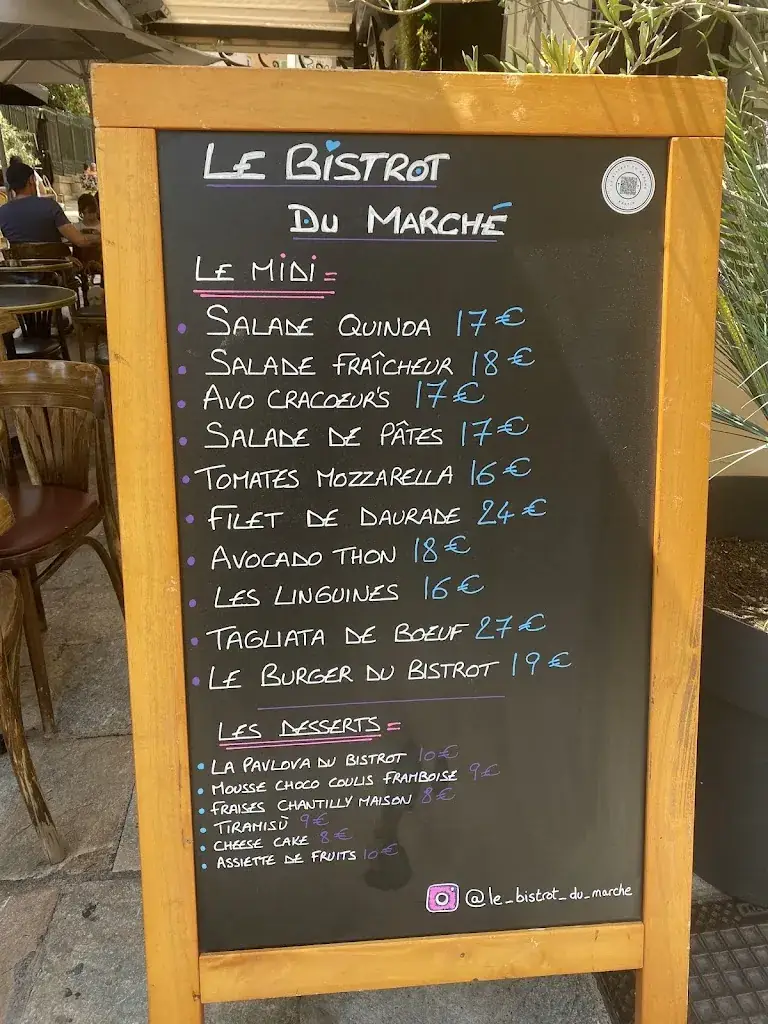 LE BISTROT
DU MARCHÉ
LE MIDI =
• SALADE QUINOA 17€
• SALADE FRAÎCHEUR 18€
• AVO CRACOEUR'S 17€
• SALADE DE PÂTES 17€
• TOMATES MOZZARELLA 16€
• FILET DE DAURADE 24€
• AVOCADO THON 18€
• LES LINGUINES 16€
• TAGLIATA DE BOEUF 27€
• LE BURGER DU BISTROT 19€
LES DESSERTS =
• LA PAVLOVA DU BISTROT 10€
• MOUSSE CHOCO COULIS FRAMBOISE 9€
• FRAISES CHANTILLY MAISON 8€
• TIRAMISÙ 9€
• CHEESE CAKE 8€
• ASSIETTE DE FRUITS 10€
@le_bistrot_du_marche